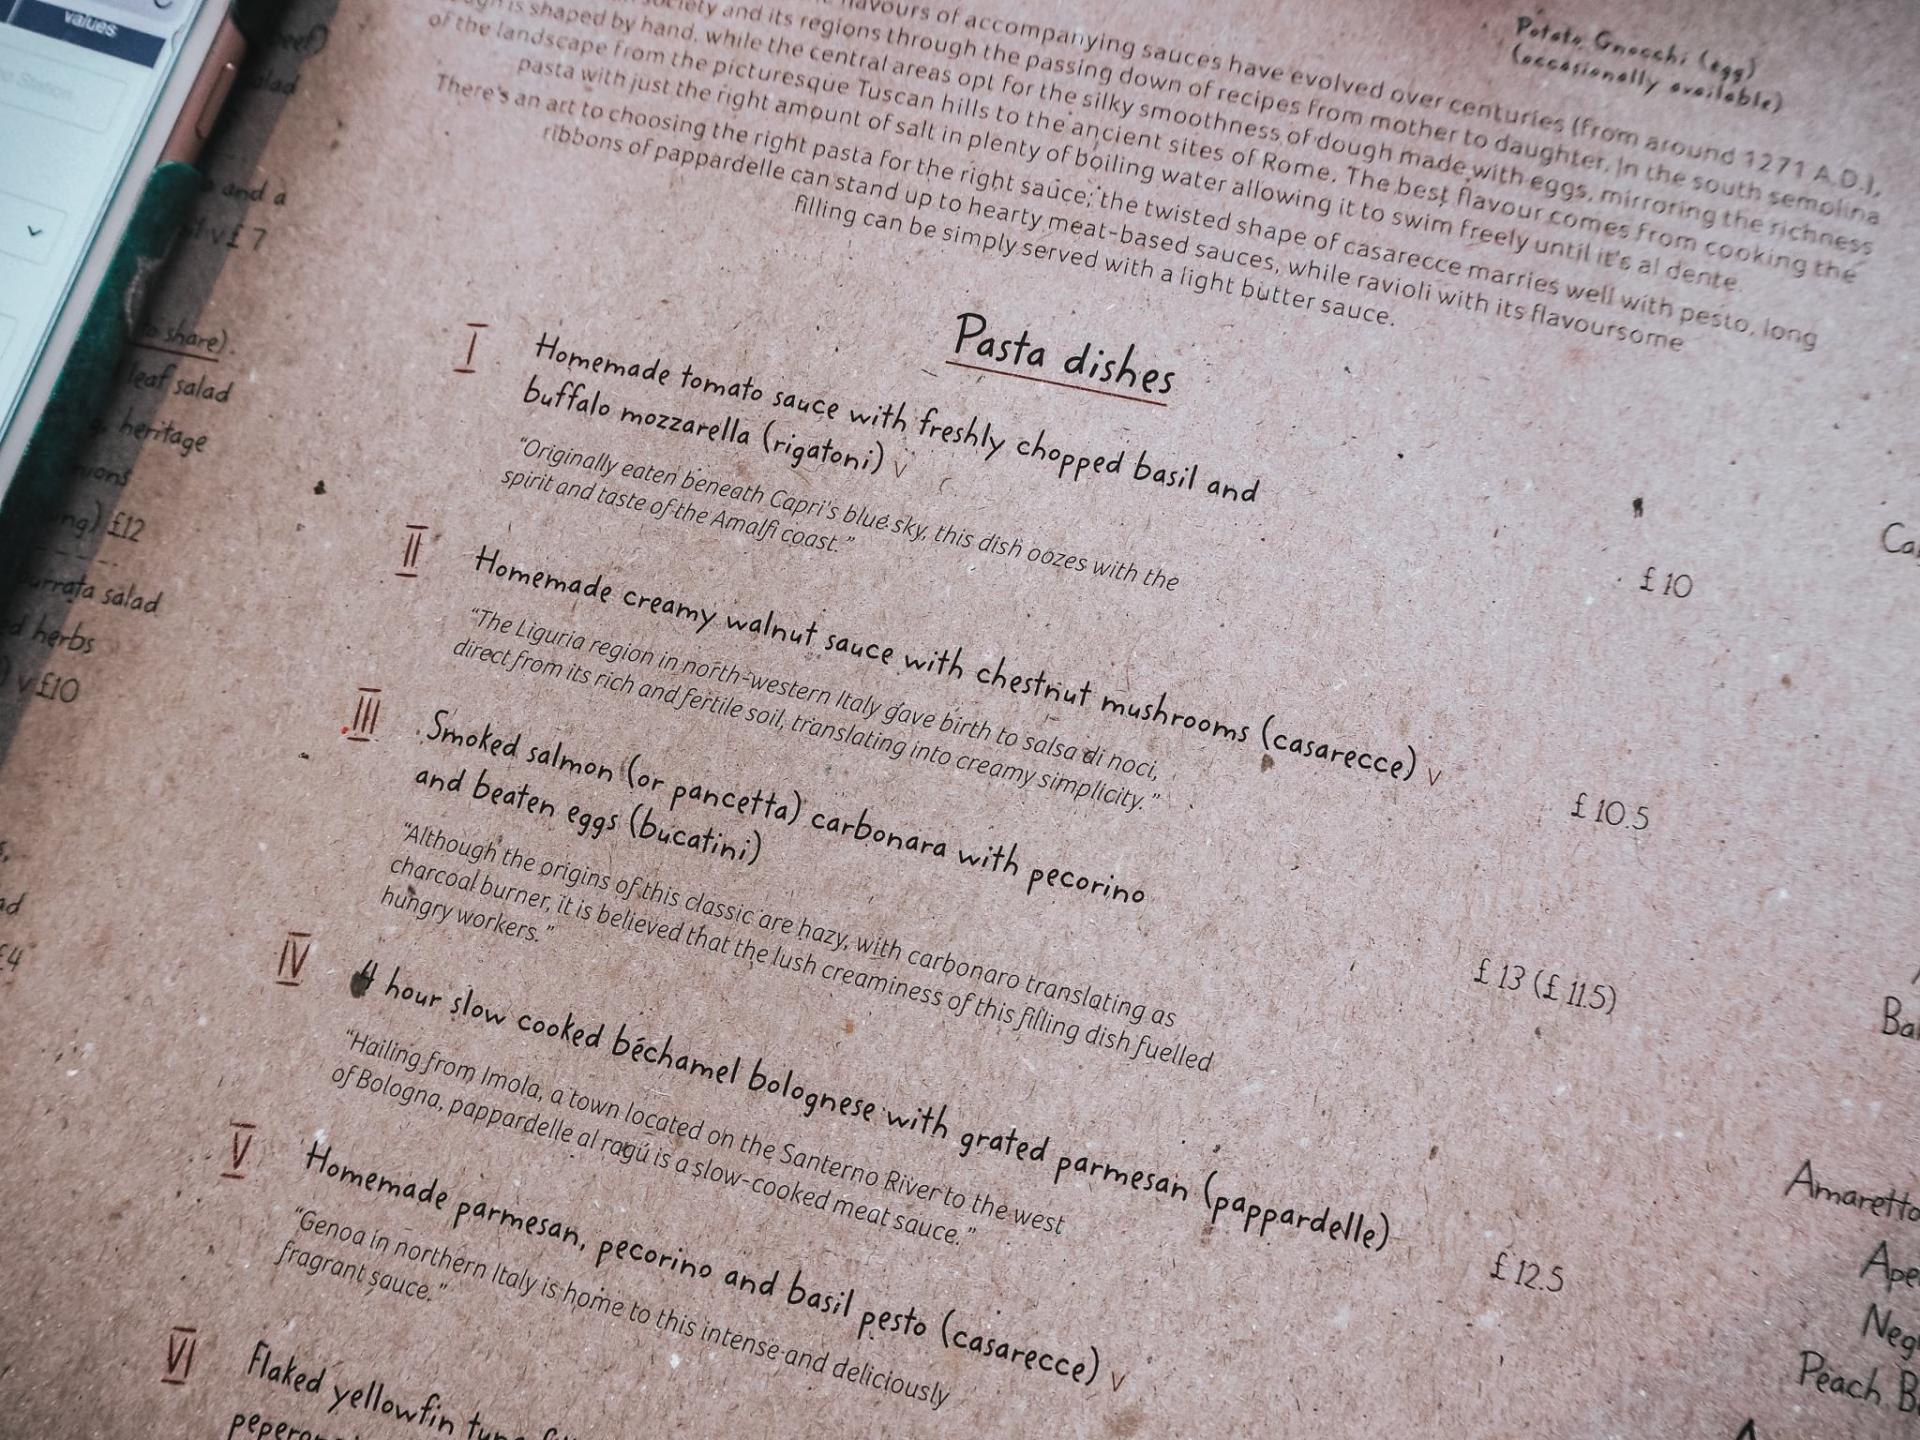 values
Potato Gnocchi (egg)
(occasionally available)
flavours of accompanying sauces have evolved over centuries (from around 1271 A.D.),
society and its regions through the passing down of recipes from mother to daughter. In the south semolina
is shaped by hand, while the central areas opt for the silky smoothness of dough made with eggs, mirroring the richness
of the landscape from the picturesque Tuscan hills to the ancient sites of Rome. The best flavour comes from cooking the
pasta with just the right amount of salt in plenty of boiling water allowing it to swim freely until it's al dente.
There's an art to choosing the right pasta for the right sauce; the twisted shape of casarecce marries well with pesto, long
ribbons of pappardelle can stand up to hearty meat-based sauces, while ravioli with its flavoursome
filling can be simply served with a light butter sauce.
Pasta dishes
I Homemade tomato sauce with freshly chopped basil and
buffalo mozzarella (rigatoni) v £10
"Originally eaten beneath Capri's blue sky, this dish oozes with the
spirit and taste of the Amalfi coast."
II Homemade creamy walnut sauce with chestnut mushrooms (casarecce) v £10.5
"The Liguria region in north-western Italy gave birth to salsa di noci,
direct from its rich and fertile soil, translating into creamy simplicity."
III Smoked salmon (or pancetta) carbonara with pecorino
and beaten eggs (bucatini) £13 (£11.5)
"Although the origins of this classic are hazy, with carbonaro translating as
charcoal burner, it is believed that the lush creaminess of this filling dish fuelled
hungry workers."
IV 4 hour slow cooked béchamel bolognese with grated parmesan (pappardelle) £12.5
"Hailing from Imola, a town located on the Santerno River to the west
of Bologna, pappardelle al ragú is a slow-cooked meat sauce."
V Homemade parmesan, pecorino and basil pesto (casarecce) v
"Genoa in northern Italy is home to this intense and deliciously
fragrant sauce."
VI Flaked yellowfin
and a
v £7
share).
leaf salad
heritage
£12
salad
herbs
v £10
£4
Amaretto
Peach